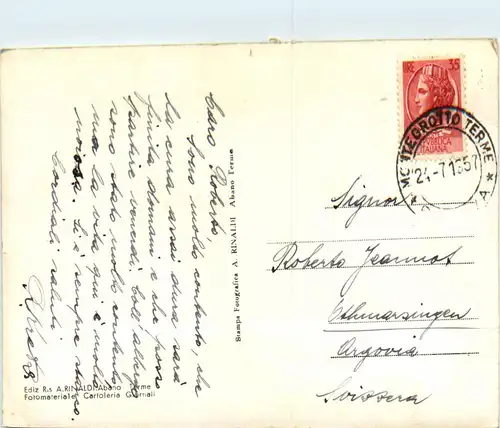 Caro Roberto,
Sono molto contento, che
la cura assai dura sarà
finita domani e che posso
partire venerdì. Coll'albergo
sono stato molto contento,
ma la vita qui è molto
noiosa. Si è sempre stanco.
Cordiali saluti
Stampa Fotografica A. RINALDI Abano Terme
Ediz. R.s A. RINALDI-Abano Terme
Fotomateriale Cartoleria Giornali
35
ITALIANA
MONTEGROTTO TERME
24-7-1957
Signor
Roberto Jeannot
Othmarsingen
Argovia
Svissera